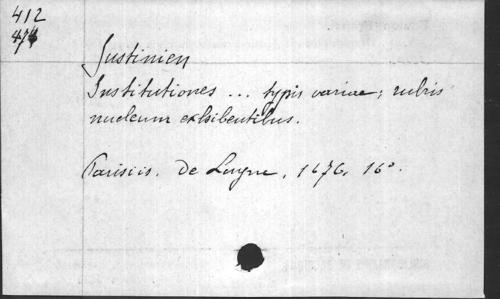 412
474
Justinien
Institutiones ... typis variae; rubris
nucleum exhibentibus.
Parisiis. De Luyne, 1676, 16°.